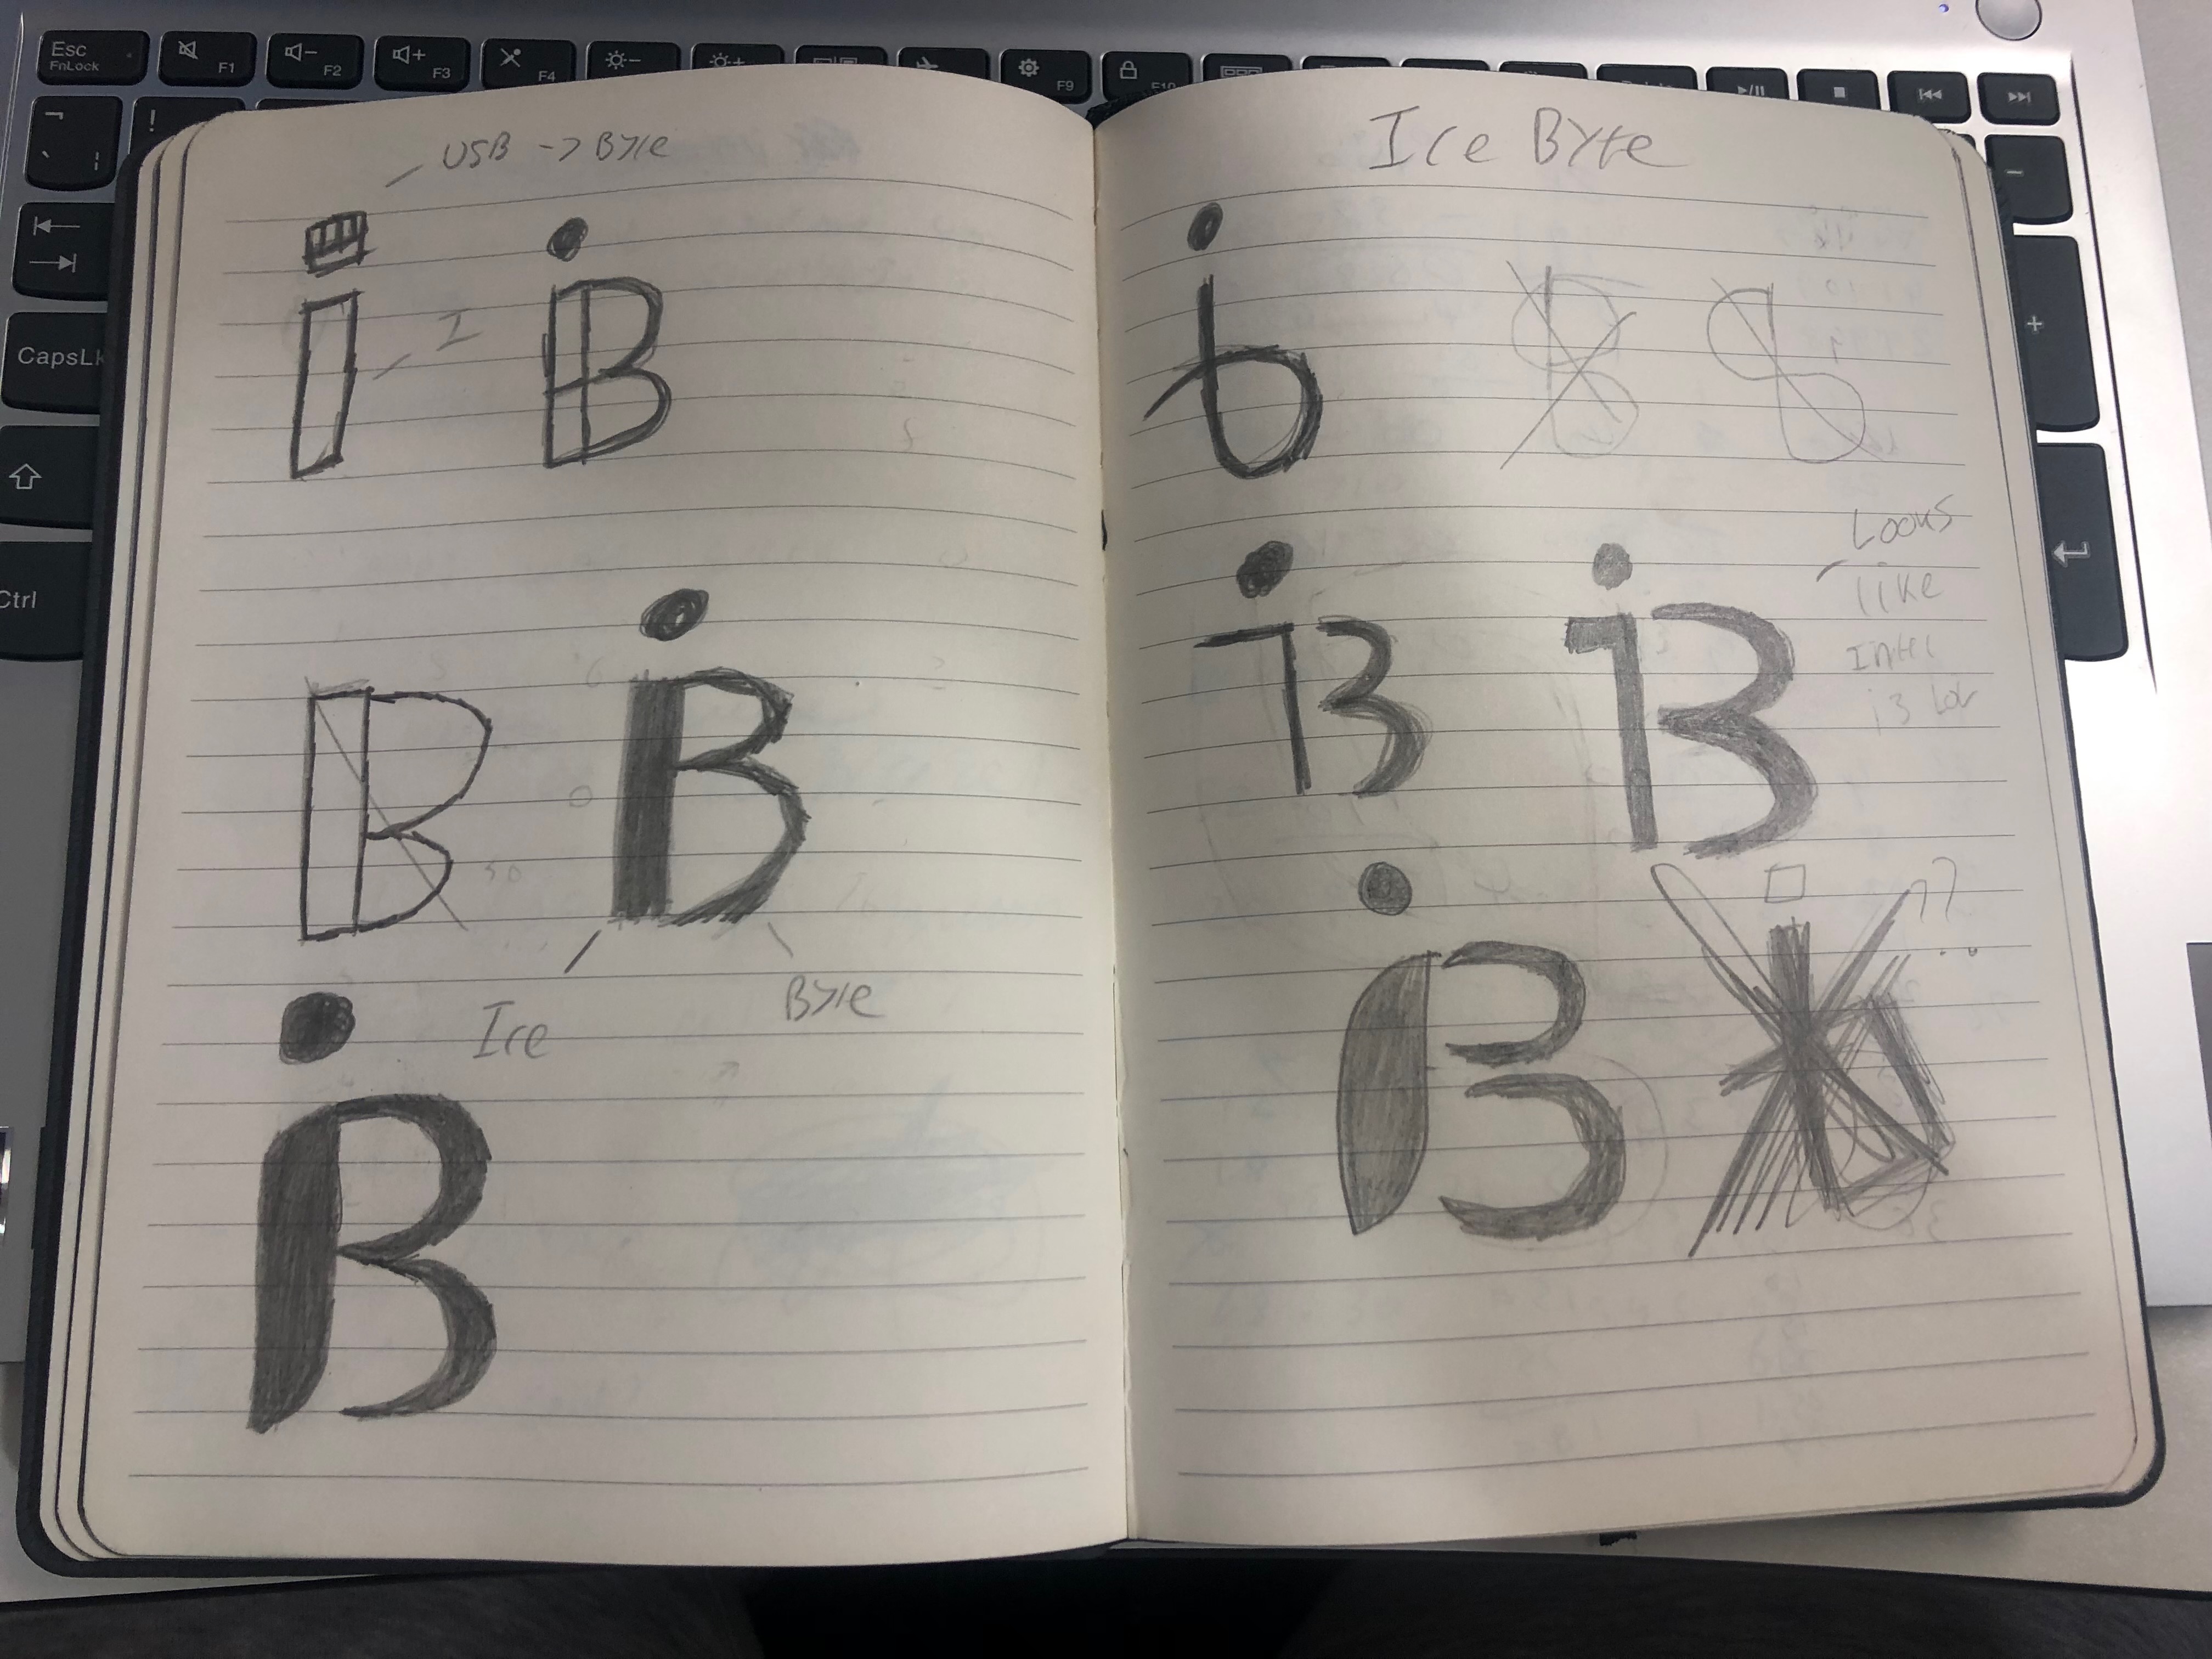 Esc
FnLock
F1
F2
F3
F4
F9
F10
!
CapsLk
Ctrl
-
+
USB -> Byte
I
iB
B
iB
Ice
Byte
iB
Ice Byte
ib
iB
iB
Looks
like
Intel
i3 lol
iB
??